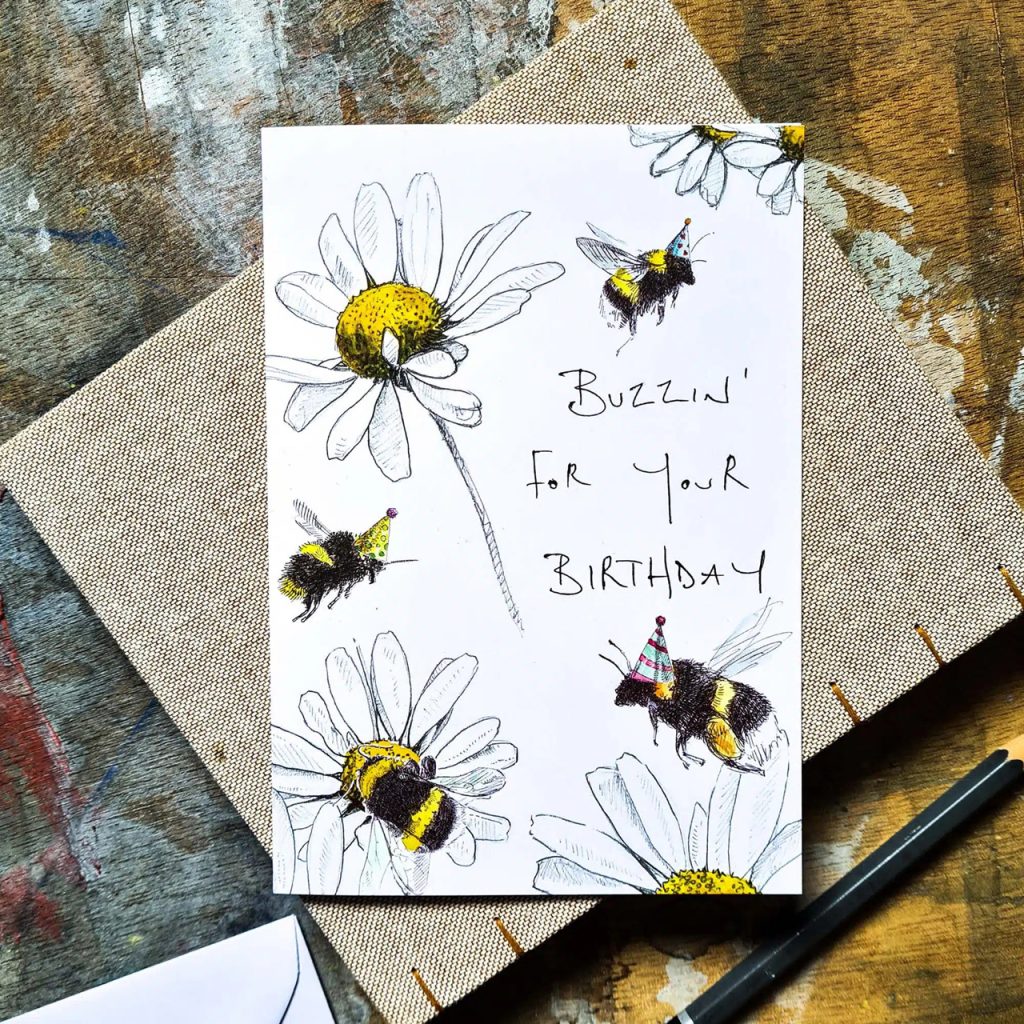 Buzzin'
For Your
Birthday